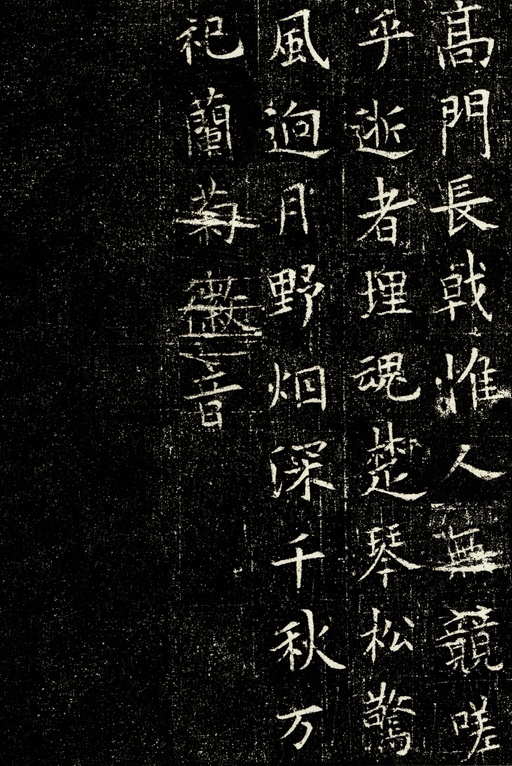 高門長戟惟人無競嗟
乎逝者埋魂楚琴松驚
風逈月野烟深千秋万
祀蘭菊徽音